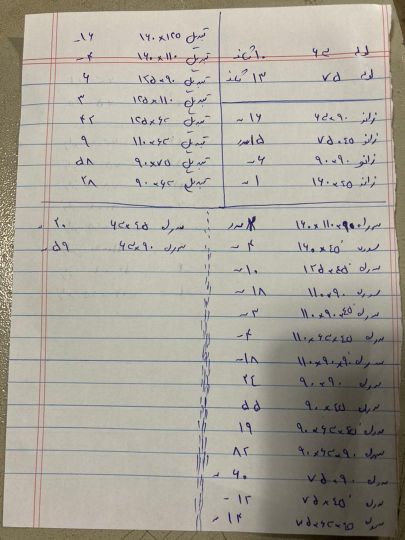 لوله ۶۳ ۱۰ شاخه
لوله ۷۵ ۱۳ شاخه
زانو ۹۰×۶۳ ۱۶
زانو ۴۵×۷۵ ۱۵ عدد
زانو ۹۰×۹۰ ۶
زانو ۴۵×۱۶۰ ۱
تبدیل ۱۲۵×۱۶۰ ۱۶
تبدیل ۱۱۰×۱۶۰ ۴
تبدیل ۹۰×۱۲۵ ۶
تبدیل ۱۱۰×۱۲۵ ۳
تبدیل ۶۳×۱۲۵ ۴۲
تبدیل ۶۳×۱۱۰ ۹
تبدیل ۷۵×۹۰ ۵۸
تبدیل ۶۳×۹۰ ۲۸
سه راه ۹۰×۱۱۰×۱۶۰ عدد
سه راه ۴۵×۱۶۰ ۴
سه راه ۴۵×۱۲۵ ۱۰
سه راه ۹۰×۱۱۰ ۱۸
سه راه ۴۵×۹۰×۱۱۰ ۳
سه راه ۴۵×۶۳×۱۱۰ ۴
سه راه ۹۰×۹۰×۱۱۰ ۱۸
سه راه ۹۰×۹۰ ۲۴
سه راه ۴۵×۹۰ ۵۵
سه راه ۴۵×۶۳×۹۰ ۱۹
سه راه ۹۰×۶۳×۹۰ ۸۲
سه راه ۹۰×۷۵ ۶۰
سه راه ۴۵×۷۵ ۱۲
سه راه ۴۵×۶۳×۷۵ ۱۴
سه راه ۴۵×۶۳ ۲۰
سه راه ۹۰×۶۳ ۵۹